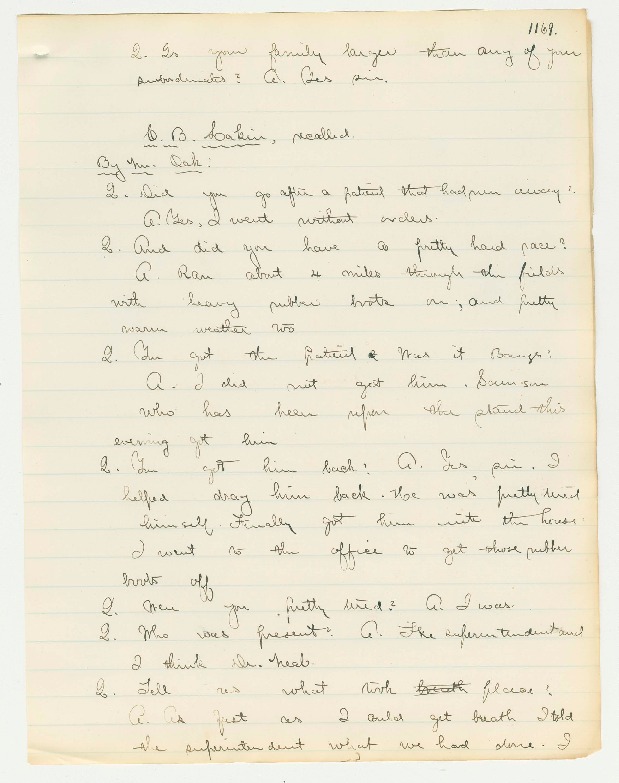 1169.
Q. Is your family larger than any of your
subordinates? A. Yes sir.
C. B. Lakin, recalled.
By Mr. Oak:
Q. Did you go after a patient that had run away?
A. Yes, I went without orders.
Q. And did you have a pretty hard race?
A. Ran about 4 miles through the fields
with heavy rubber boots on; and pretty
warm weather too
Q. You got the patient Was it Bangs?
A. I did not get him.
who has been upon the stand this
evening got him
Q. You got him back? A. Yes, sir. I
helped drag him back. He was pretty tired
himself. Finally got him into the house.
I went to the office to get those rubber
boots off
Q. Were you pretty tired? A. I was.
Q. Who was present? A. The superintendent and
I think Dr. Neal.
Q. Tell us what took breath place?
A. As fast as I could get breath I told
the superintendent what we had done. I